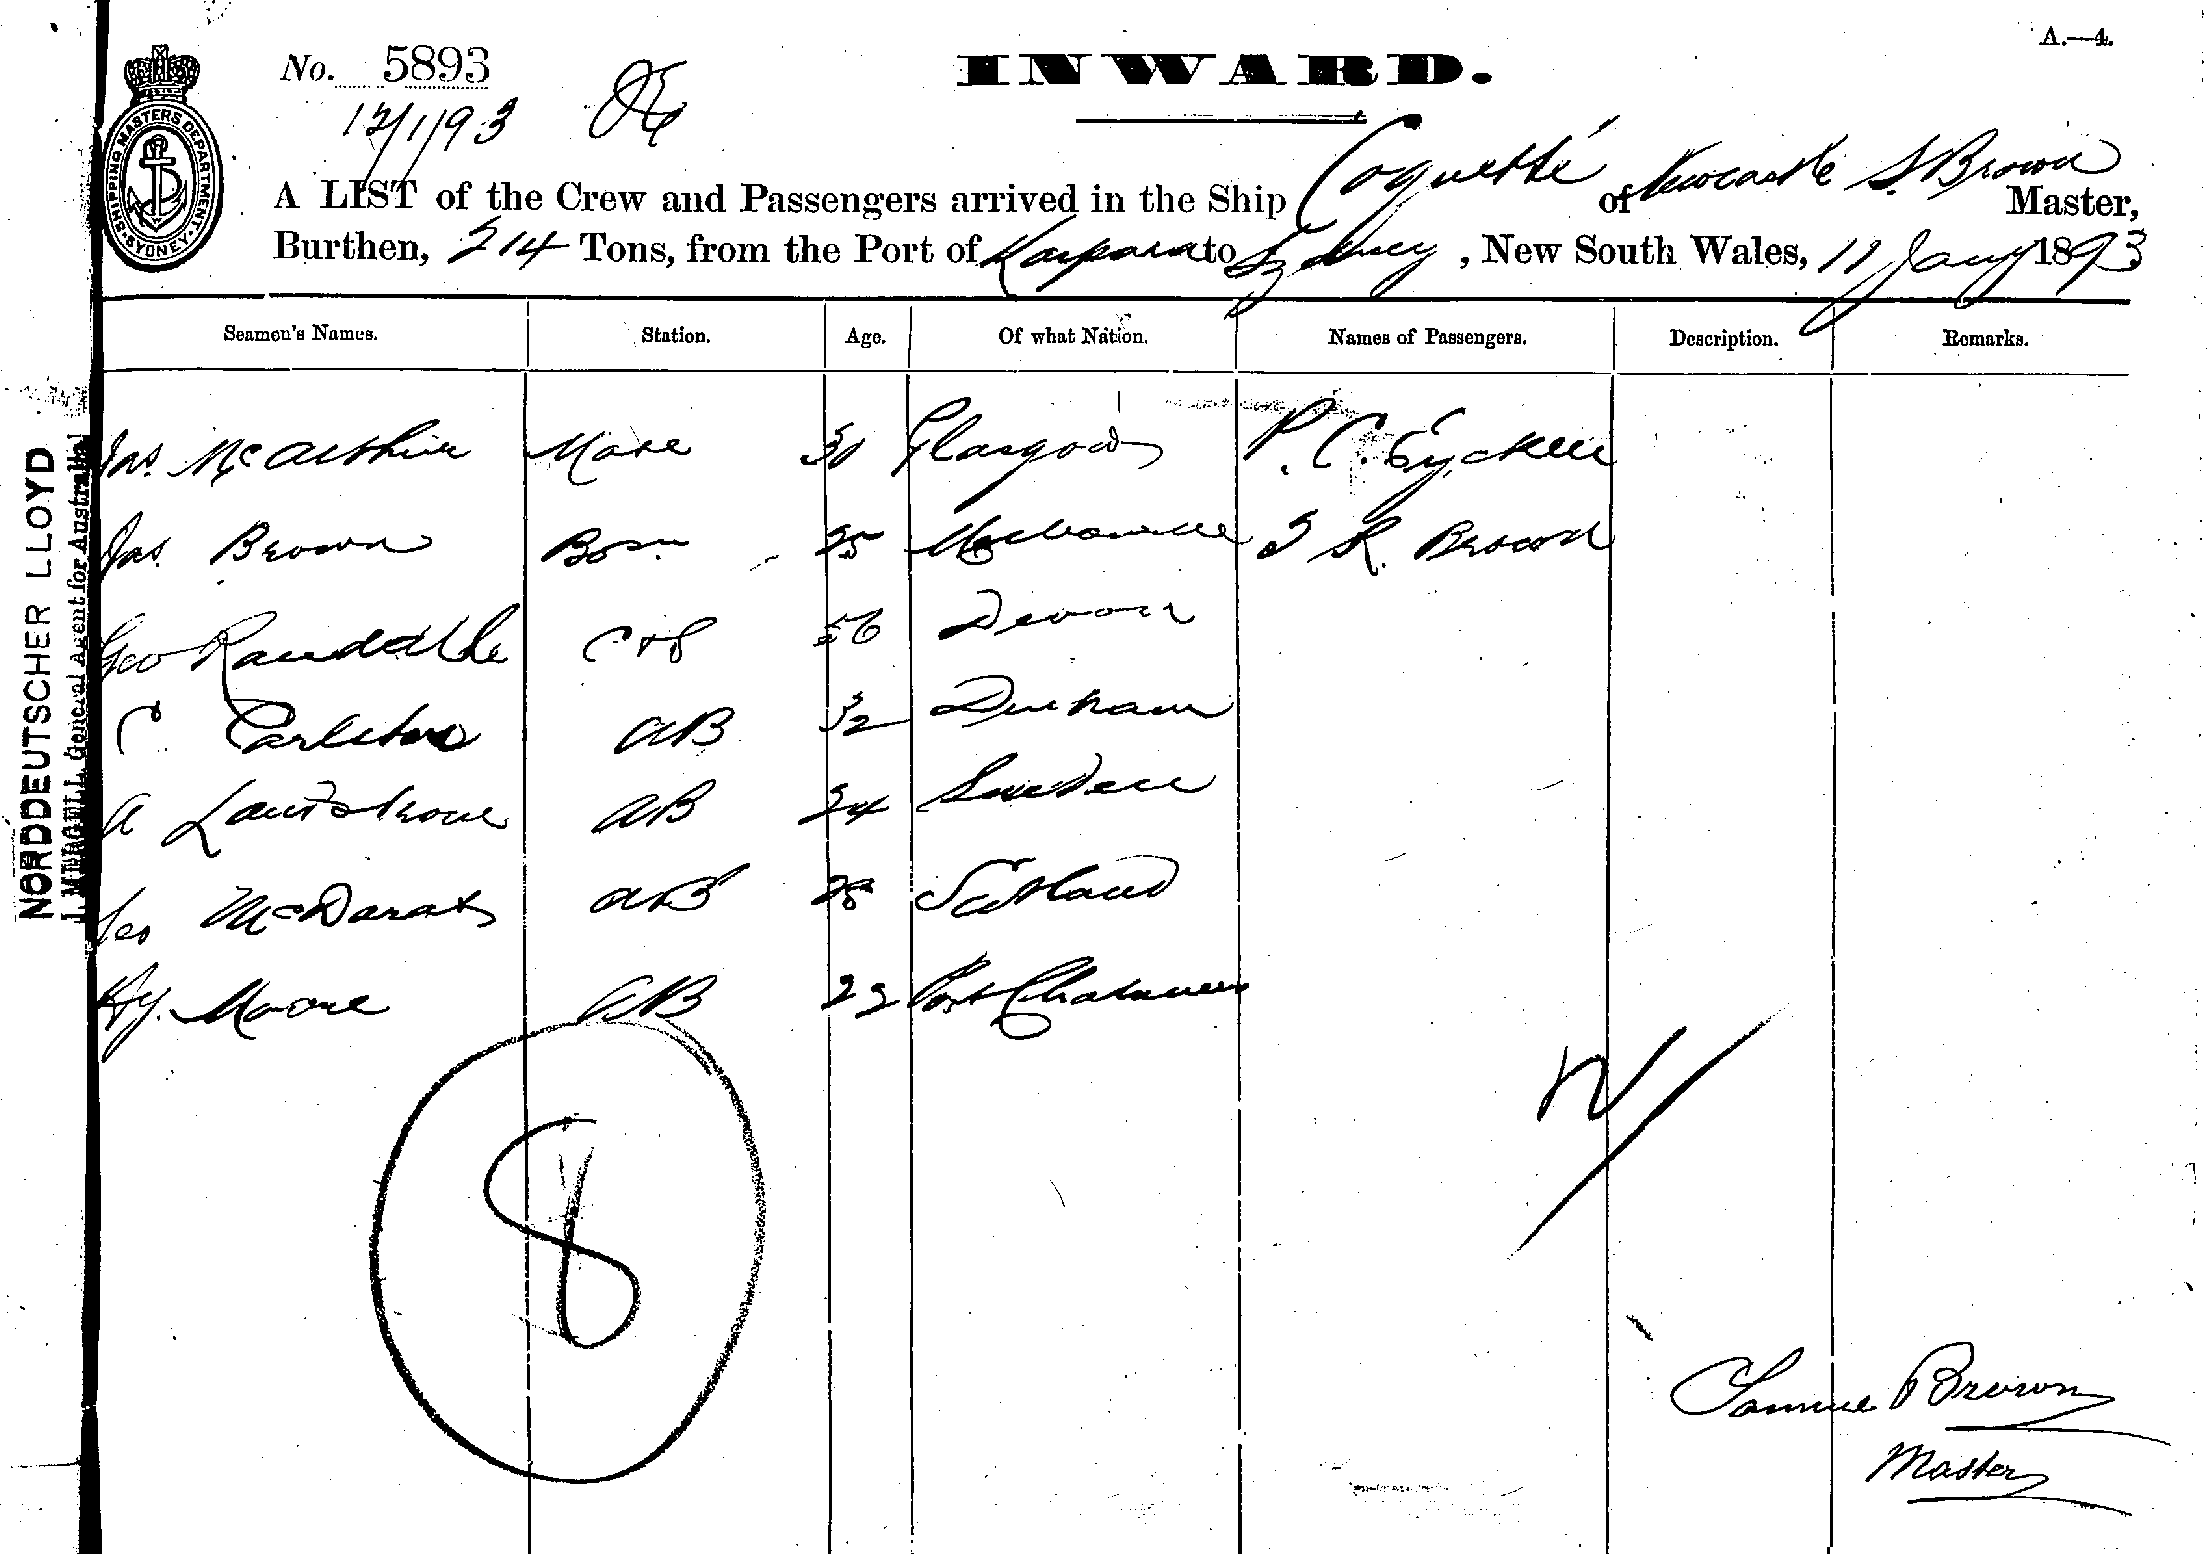 A.—4.
No. 5893
INWARD.
12/1/93
SHIPPING MASTERS DEPARTMENT SYDNEY
A LIST of the Crew and Passengers arrived in the Ship Coquette of Newcastle S. Brown Master,
Burthen, 214 Tons, from the Port of Kaipara to Sydney, New South Wales, 11 Jany 1893
Seamen's Names. Station. Age. Of what Nation. Names of Passengers. Description. Remarks.
Jas. McArthur Mate 30 Glasgow P. C.
Jas. Brown Bosn 25 Melbourne R. Brown
Geo C & S 56 Devon
C Carleton AB 32 Durham
A AB 24 Sweden
AB 28 Scotland
Hy. Moore AB 22 Port Chalmers
8
Samuel Brown
Master
NORDDEUTSCHER LLOYD
General Agent for Australia